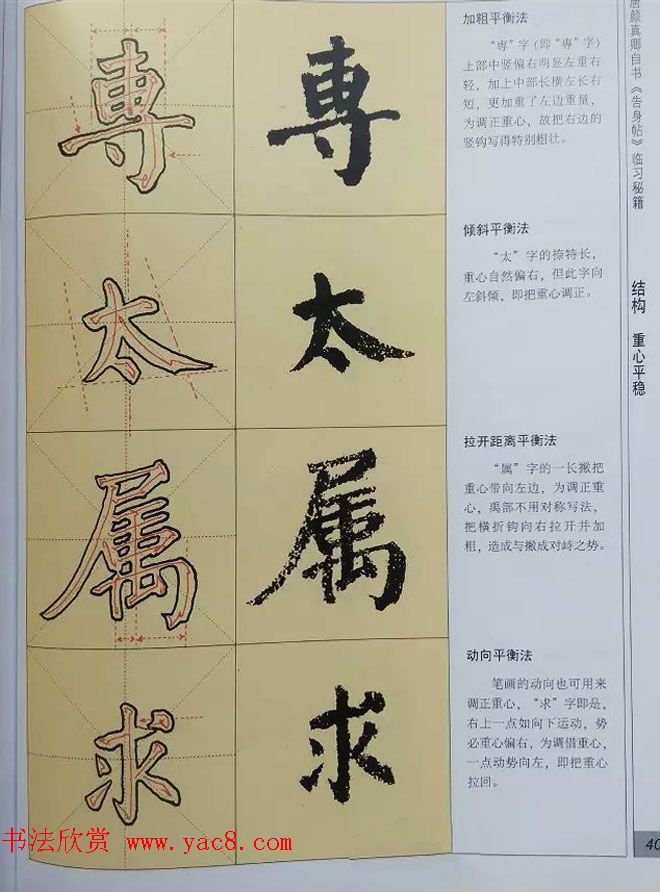 専
専
加粗平衡法
“専”字(即“專”字)
上部中竖偏右明显左重右
轻，加上中部长横左长右
短，更加重了左边重量，
为调正重心，故把右边的
竖钩写得特别粗壮。
太
太
倾斜平衡法
“太”字的捺特长，
重心自然偏右，但此字向
左斜倾，即把重心调正。
属
属
拉开距离平衡法
“属”字的一长撇把
重心带向左边，为调正重
心，禹部不用对称写法，
把横折钩向右拉开并加
粗，造成与撇成对峙之势。
求
求
动向平衡法
笔画的动向也可用来
调正重心，“求”字即是，
右上一点如向下运动，势
必重心偏右，为调借重心，
一点动势向左，即把重心
拉回。
唐颜真卿自书《告身帖》临习秘籍
结构 重心平稳
40
书法欣赏 www.yac8.com